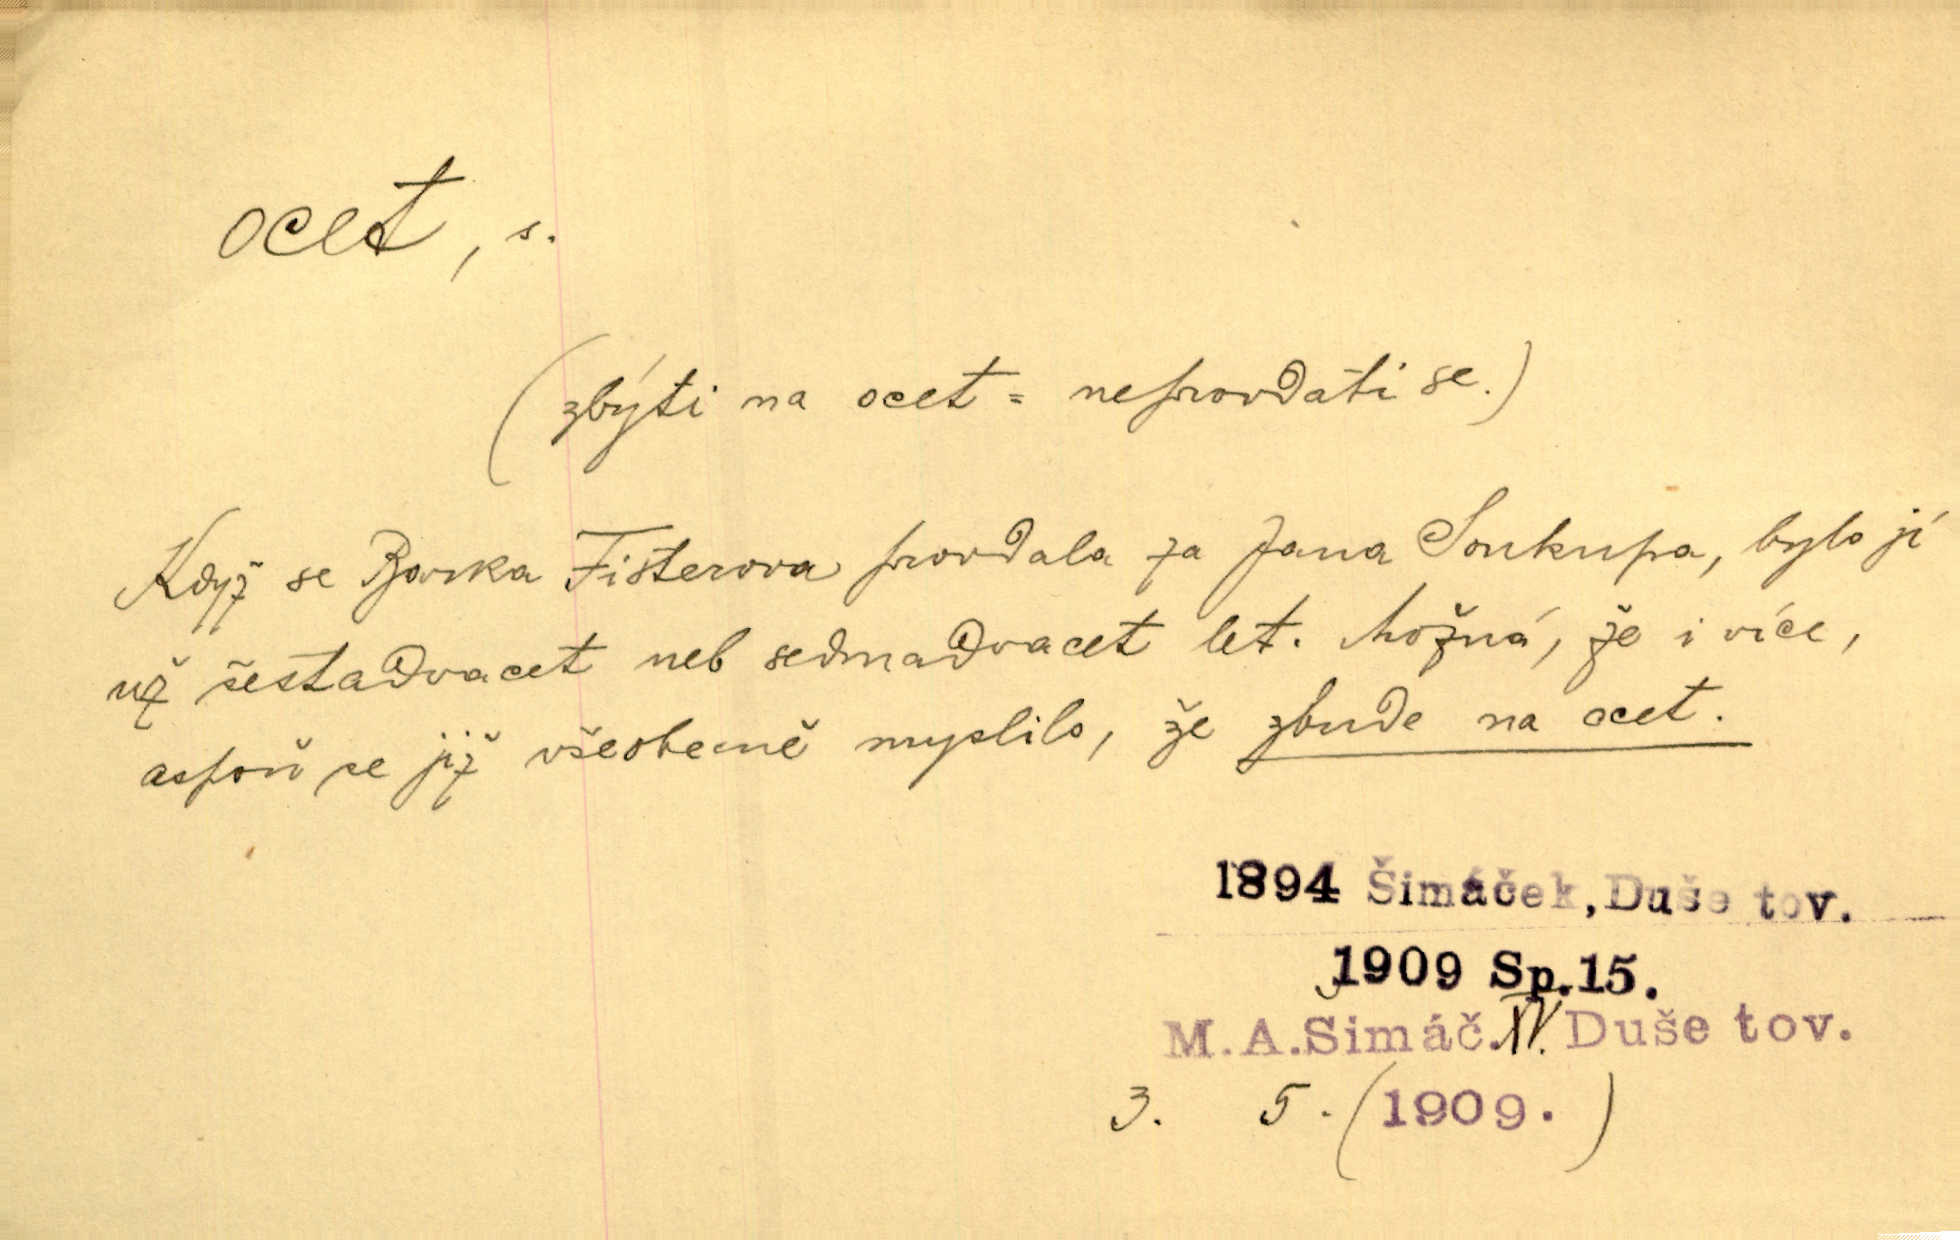 ocet, s.
(zbýti na ocet = neprovdati se.)
Když se Borka Fišterova provdala za Jana Soukupa, bylo jí
už šestadvacet neb sedmadvacet let. Možná, že i více,
aspoň se již všeobecně myslilo, že zbude na ocet.
1894 Šimáček, Duše tov.
1909 Sp. 15.
M. A. Simáč. XV. Duše tov.
3. 5. (1909.)